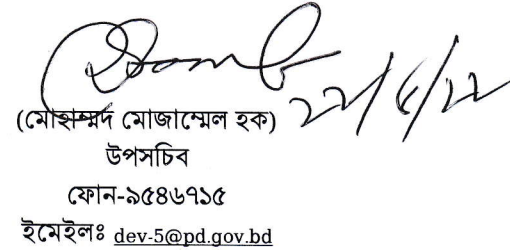 (মোহাম্মদ মোজাম্মেল হক)
উপসচিব
ফোন-৯৫৪৬৭১৫
ইমেইলঃ dev-5@pd.gov.bd